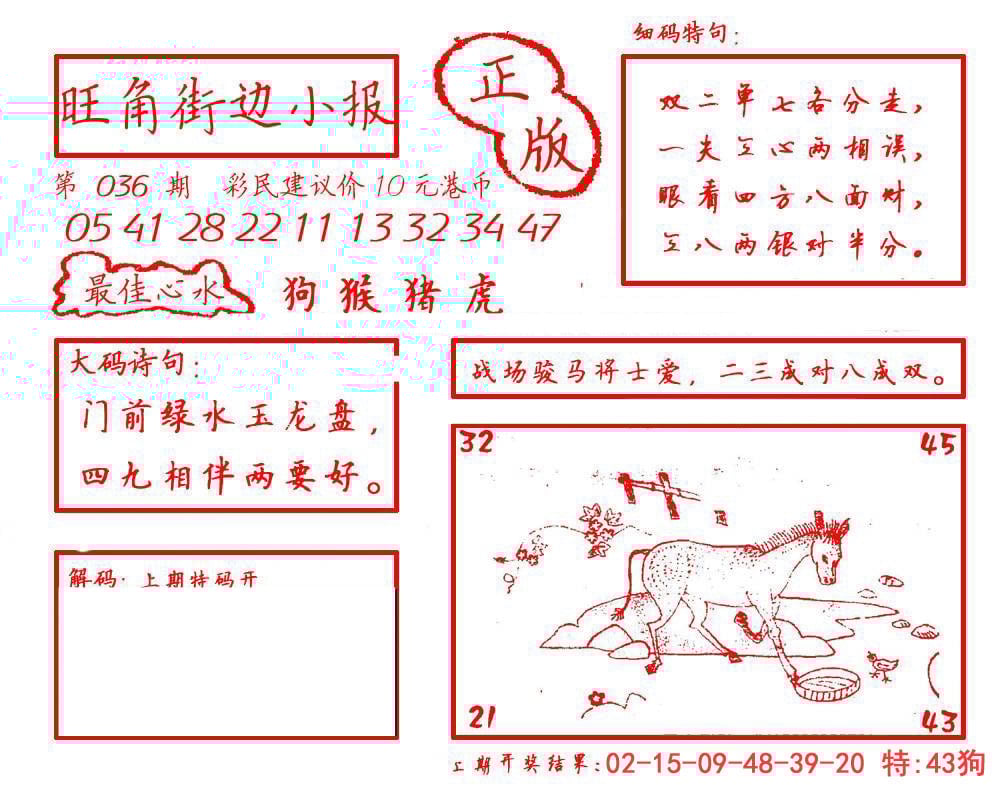 旺角街边小报
正
版
第 036 期 彩民建议价 10 元港币
05 41 28 22 11 13 32 34 47
最佳心水
狗 猴 猪 虎
细码特句:
双二单七各分走,
一失三心两相误,
眼看四方八面财,
三八两银对半分。
大码诗句:
门前绿水玉龙盘,
四九相伴两要好。
战场骏马将士爱, 二三成对八成双。
解码· 上期特码开
32
45
21
43
上期开奖结果:02-15-09-48-39-20 特:43狗